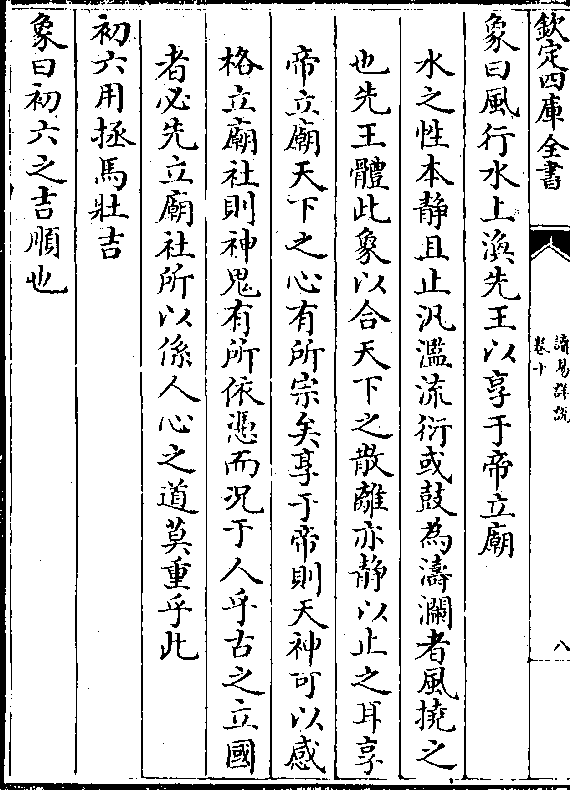 欽定四庫全書
讀易詳說
卷十
八
象曰風行水上渙先王以享于帝立廟
水之性本靜且止汎濫流衍或鼓為濤瀾者風撓之
也先王體此象以合天下之散離亦靜以止之耳享
帝立廟天下之心有所宗矣享于帝則天神可以感
格立廟社則神鬼有所依憑而况于人乎古之立國
者必先立廟社所以係人心之道莫重乎此
初六用拯馬壯吉
象曰初六之吉順也